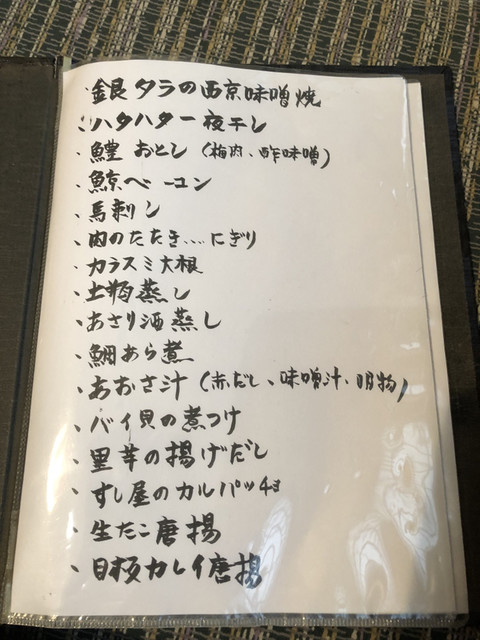 ・銀タラの西京味噌焼
・ハタハタ一夜干し
・鱧おとし（梅肉、酢味噌）
・鯨ベーコン
・馬刺し
・肉のたたき…にぎり
・カラスミ大根
・土瓶蒸し
・あさり酒蒸し
・鯛あら煮
・あおさ汁（赤だし、味噌汁、吸物）
・バイ貝の煮つけ
・里芋の揚げだし
・すし屋のカルパッチョ
・生たこ唐揚
・目板カレイ唐揚